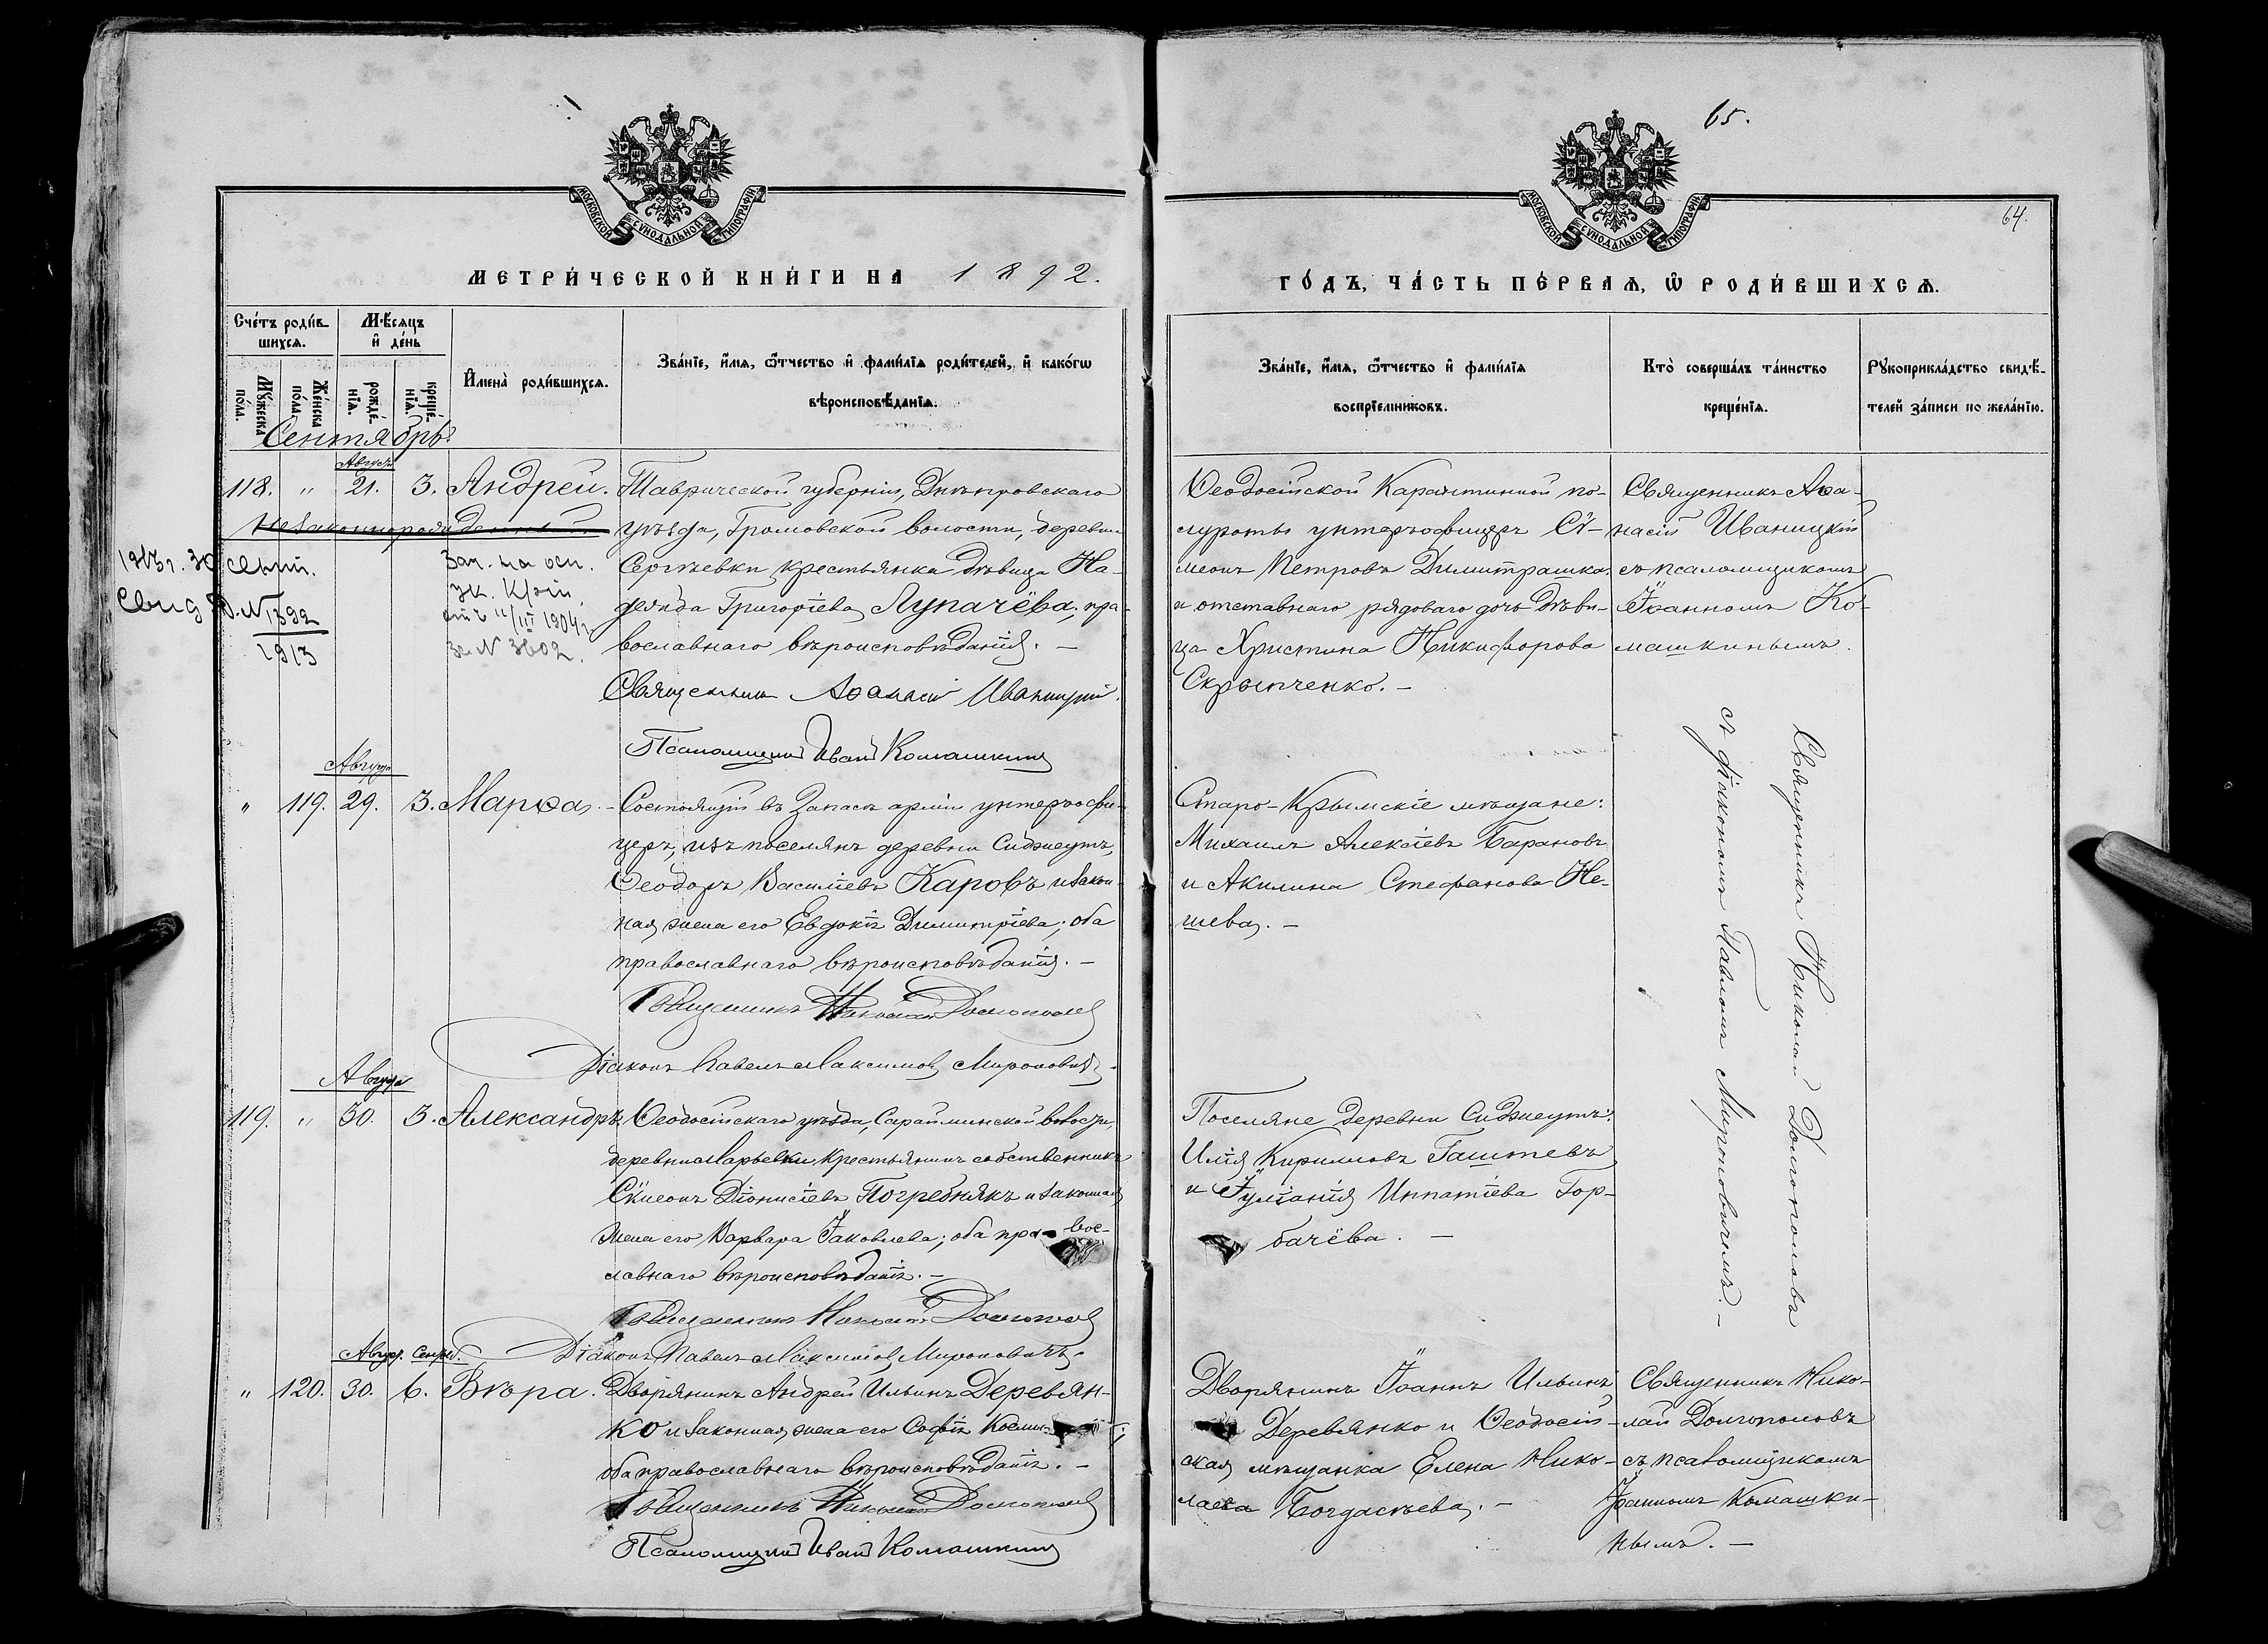 65.
МОСКОВСКОЙ СУНОДАЛЬНОЙ ТИПОГРАФІИ
МОСКОВСКОЙ СУНОДАЛЬНОЙ ТИПОГРАФІИ
64.
МЕТРИ́ЧЕСКОЙ КНИ́ГИ НА 1892.
ГО́ДЪ, ЧА́СТЬ ПЕ́РВАѦ, Ѿ РОДИ́ВШИХСѦ.
Сче́тъ роди́в-
шихсѧ.
Мѣ́сѧцъ
и҆ де́нь
Мꙋ́жеска
по́ла.
Же́нска
по́ла.
рожде́-
нїѧ.
креще́-
нїѧ.
И҆мена̀ роди́вшихсѧ.
Зва́нїе, и҆́мѧ, ѻ҆́тчество и҆ фамі́лїѧ роди́телей, и҆ како́гѡ
вѣроисповѣ́данїѧ.
Зва́нїе, и҆́мѧ, ѻ҆́тчество и҆ фамі́лїѧ
воспрїе́мниковъ.
Кто̀ соверша́лъ та́инство
креще́нїѧ.
Рꙋкоприкла́дство свидѣ́-
телей за́писи по жела́нїю.
Сентябрь
Августа
118. " 21. 3. Андрей.
Незаконнорожденный
1913 г. 30 сент.
Свид. № 1392
1913
Зап. на осн.
ук. К/сіи
отъ 11/III 1904 г.
за № 3602.
Таврической губерніи, Днѣпровскаго
уѣзда, Громовской волости, деревни
Сергѣевки крестьянка дѣвица На-
дежда Григоріева Лупачёва; пра-
вославнаго вѣроисповѣданія. —
Священникъ Аѳанасій Иваницкій.
Псаломщикъ Иванъ Комашкинъ
Ѳеодосійской Карантинной по-
луроты унтеръ-офицеръ Сѵ-
меонъ Петровъ Димитрашко
и отставнаго рядоваго дочь дѣви-
ца Христина Никифорова
Скрыпченко. —
Священникъ Аѳа-
насій Иваницкій
съ псаломщикомъ
Іоанномъ Ко-
машкинымъ.
Августа
" 119. 29. 3. Марѳа. —
Состоящій въ запасѣ арміи унтеръ-офи-
церъ, изъ поселянъ деревни Сиджеутъ,
Ѳеодоръ Василіевъ Каровъ и закон-
ная жена его Евдокія Димитріева; оба
православнаго вѣроисповѣданія. —
Священникъ Николай Долгополовъ
Діаконъ Павелъ Максимовъ Мироновичъ.
Старо-Крымскіе мѣщане:
Михаилъ Алексіевъ Барановъ
и Акилина Стефанова Не-
шева. —
Священникъ Николай Долгополовъ
съ діакономъ Павломъ Мироновичемъ. —
Августа
119. " 30. 3. Александръ.
Ѳеодосійскаго уѣзда, Сарайминской волости,
деревни Марьевки, крестьянинъ собственникъ
Сѵмеонъ Діонисіевъ Погребнякъ и законная
жена его Варвара Іаковлева; оба право-
славнаго вѣроисповѣданія. —
Священникъ Николай Долгополовъ
Діаконъ Павелъ Максимовъ Мироновичъ.
Поселяне деревни Сиджеутъ:
Илія Кирилловъ Гаштевъ
и Іуліанія Ипатіева Гор-
бачёва. —
Август. Сентяб.
" 120. 30. 6. Вѣра.
Дворянинъ Андрей Ильинъ Деревян-
ко и законная жена его Софія
оба православнаго вѣроисповѣданія. —
Священникъ Николай Долгополовъ
Псаломщикъ Иванъ Комашкинъ
Дворянинъ Іоаннъ Ильинъ
Деревянко и Ѳеодосій-
ская мѣщанка Елена Нико-
лаева
Священникъ Нико-
лай Долгополовъ
съ псаломщикомъ
Іоанномъ Комашки-
нымъ. —